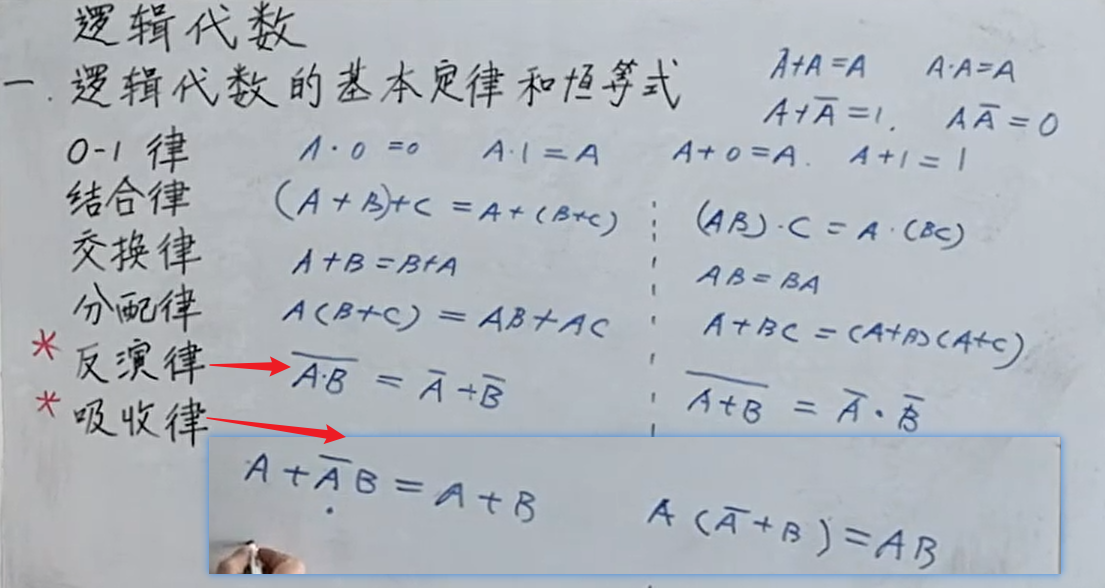 逻辑代数
一. 逻辑代数的基本定律和恒等式
A+A=A A·A=A
A+A̅=1. AA̅=0
0-1律 A·0=0 A·1=A A+0=A. A+1=1
结合律 (A+B)+C=A+(B+C) (AB)·C=A·(BC)
交换律 A+B=B+A AB=BA
分配律 A(B+C)=AB+AC A+BC=(A+B)(A+C)
*反演律 A̅·̅B̅=A̅+B̅ A̅+̅B̅=A̅·B̅
*吸收律
A+A̅B=A+B A(A̅+B)=AB